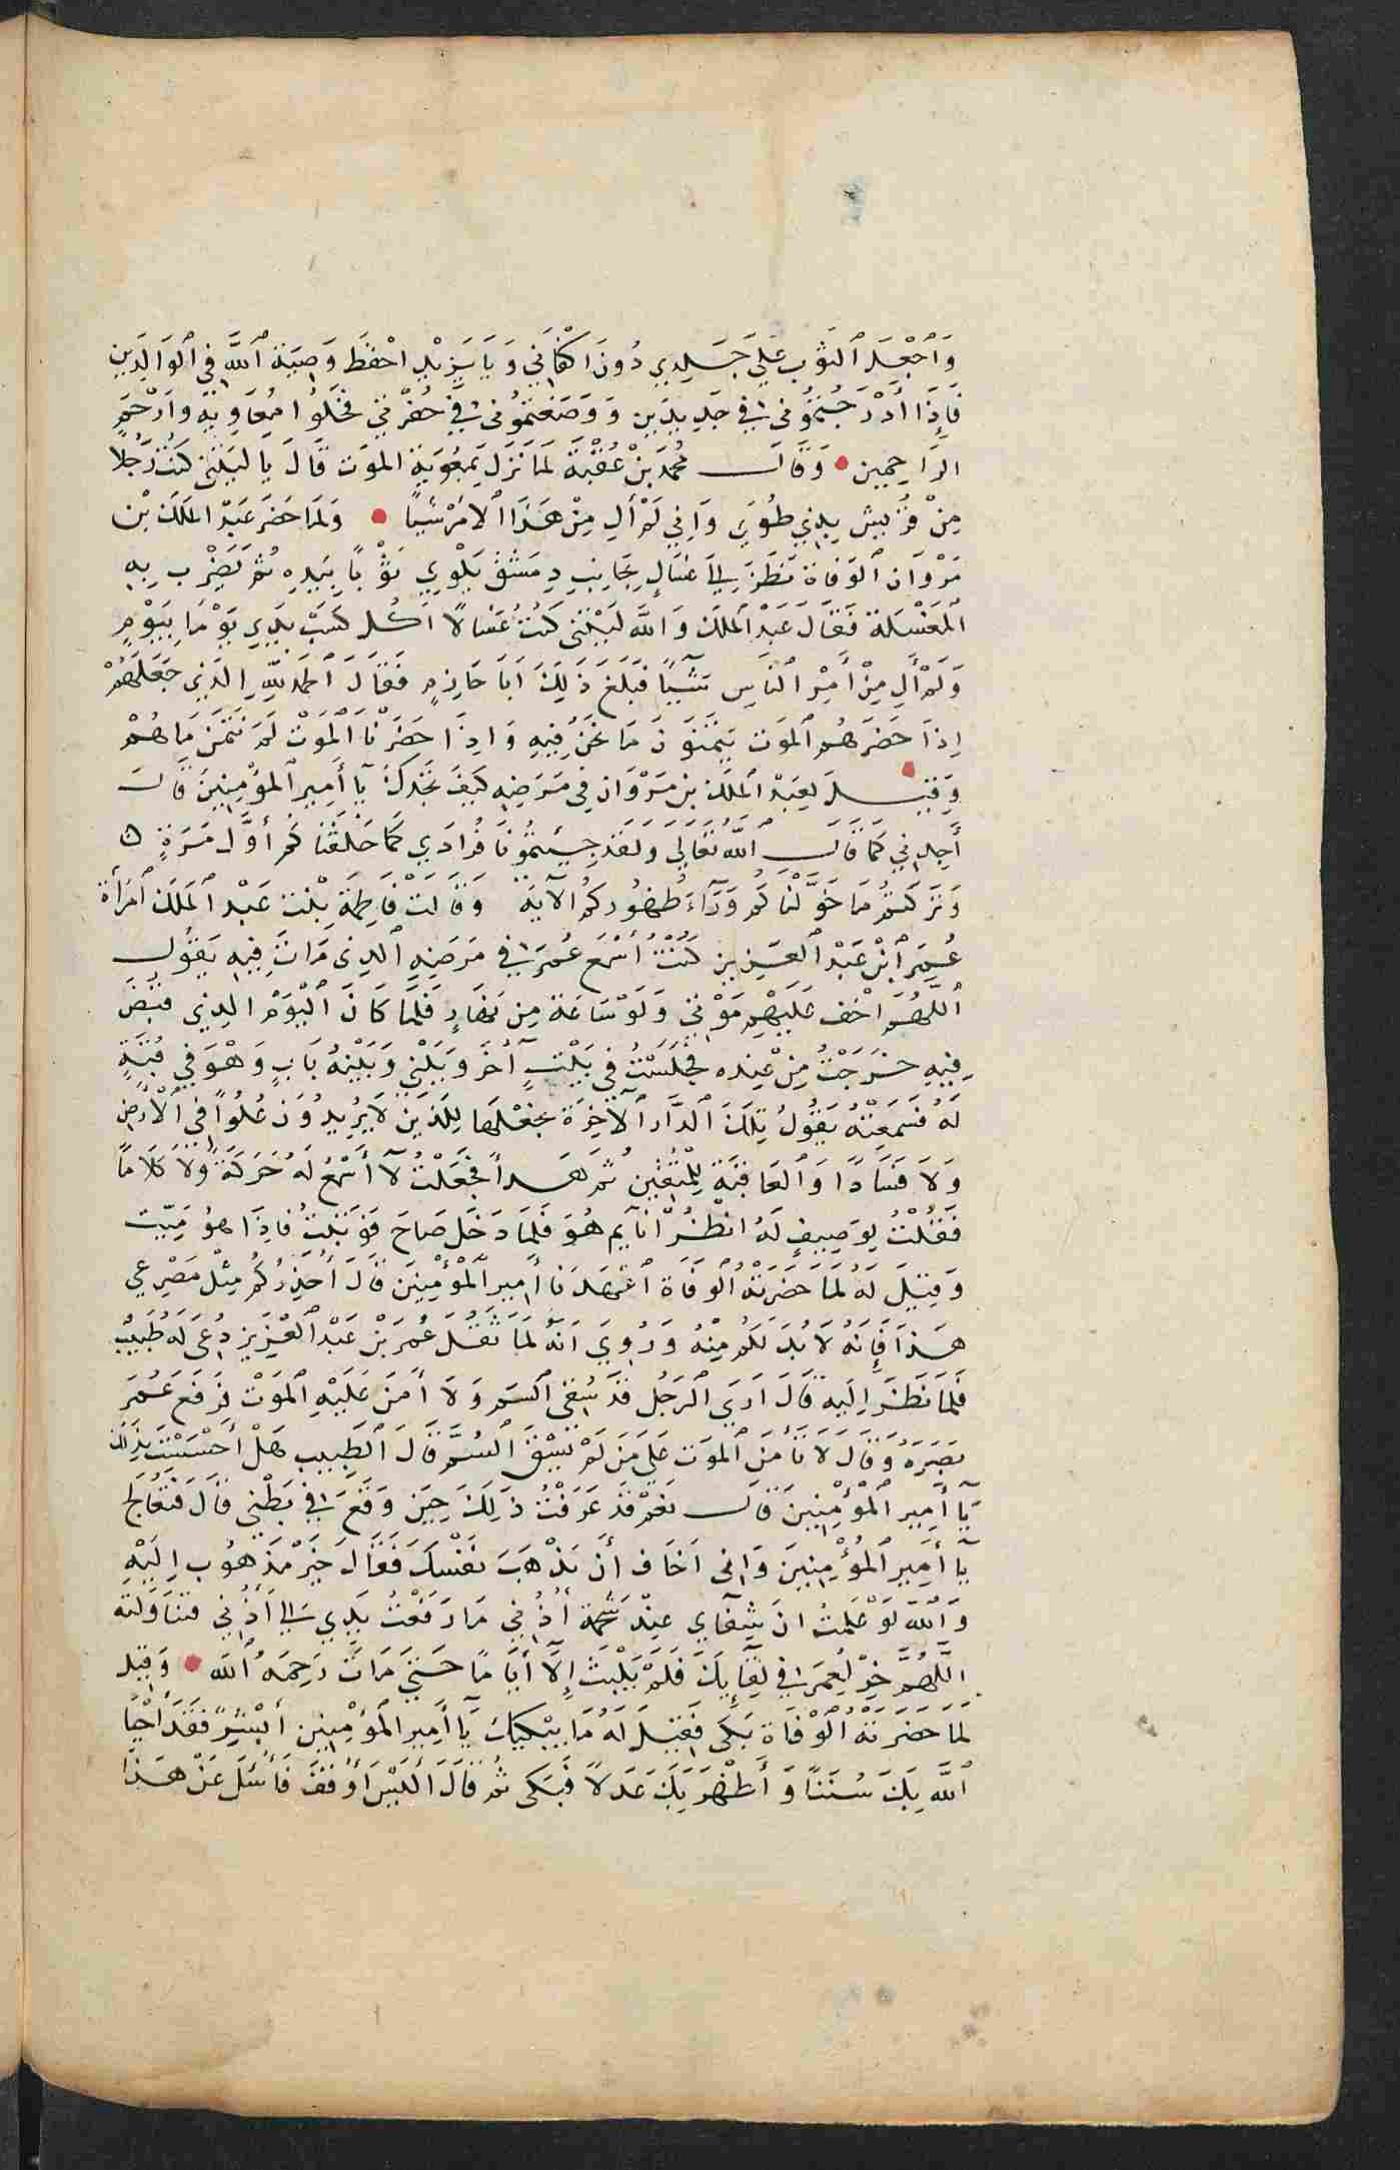 وَاُجْعَل اَلثَوْب عَلىَ جَسَدِي دُونَ اَكْفَانِي وَيَا يَزِيْد احْفَظ وَصِيَة اَللَّه فِي اَلوَالِدَيِن
فَإِذَا أَدْرَجْتُمُونى فِي جَدِيدِين وَوَضَعْتمُونى فِي حُفْرَتي فَخَلوُا مُعَاوِيَة وَأَرْحَمِ
الرَاحِمِين • وَقَال مُحَمَد بَنْ عُقْبَة لمَا نَزَل بمَعُوِيَة الموَت قَالَ يَا لَيتَنِي كَنْتُ رَجُلاً
مِنْ قرُيْش بِذِي طُوَي وَاِني لَمْ أَلِ مِنْ هَذَا اَلامْر شَيأً • وَلمَا حَضَر عَبْد الملَك بْن
مَرْوَان اَلوَفَاة نَظَر إِلىَ غسَال بِجَانِب دِمَشق يَلْوِي ثَوْباً بِيَدِهِ ثُم يَضْرِب بِهِ
اَلمغَسَلَة فَقَالَ عَبْد اَلملَك وَاللَّه لَيْتَنىِ كُنْتُ غَسَالًا اَكُل كسَبْ يَدِي يَوْمًا بِيَوْمٍ
وَلَمْ أَلِ مِنْ أَمْر اَلنَاس شَيْأً فَبَلَغ ذَلِكَ اَبَا حَازِم فَقَالَ اَلحَمد للَّهِ الَذِي جَعَلَهُمْ
اِذَا حَضَرَهُم اَلموَت يَتمَنَوْنَ مَا نحَنُ فِيِهِ وَاِذَا حَضَرْنَا اَلموَتْ لمْ نَتمَنَ مَا هُمْ
وَقِيل لعَبْد اَلملَك بن مَرْوَان فِي مَرَضِهِ كَيَفَ تجَدكَ يَآ أَمِير اَلمؤْمِنِينَ قَال
أَجِدِني كمَا قَال اَللَّهُ تَعَالىَ وَلَقَد جِئتمُونَا فُرَادَي كمَا خَلَقْنَاكُم أوَّل مَرَةٍ
وَتَرَكْتمُ مَا خَوَّلْنَاكُم وَرَآءَ ظُهُورِكُم الآيَة وَقَالتْ فَاطِمَة بِنْت عَبْد اَلملَك اُمَرْأَة
عُمَر اَبْن عَبْد اَلعَزِيز كُنْتُ أَسْمَع عُمَر فِي مَرَضِهِ اَلذِى مَاتَ فِيِهِ يَقُول
اَللَّهُمَ اخْف عَلَيْهِم مَوْتي وَلَوْ سَاعَة مِن نهَارٍ فَلمَا كَانَ اَلْيَوْم الذِي قَبُضَ
فِيهِ خَرَجَتُ مِنْ عِنْدِه فجَلَسَتُ فِي بَيْتٍ آخُرَ وَبَيْنِي وَبَيْنهُ بَابٍ وَهْوَ فِي قُبَةٍ
لَهُ فَسَمعِتْهُ يَقُولُ تِلكَ اَلدَّار اَلآخِرَة نجعَلهَا لِلَذِينَ لَا يُرِيدُونَ عُلُواً فيِ اَلْأَرْضِ
وَلَا فَسَادًا وَاَلعَاقِبَة لِلمُتَقيِن ثُم هَدأ فجَعَلْتُ لآ أَسْمَعُ لَهُ حَرَكَةً وَلَا كَلَاماً
فَقُلْتُ لِوَصِيفٍ لَهُ انظْرُ أنَايِم هُوَ فَلمَا دَخَل صَاحَ فَوَثَبْتُ فَاِذَا هوُ مَيِّت
وَقِيلَ لَهُ لمَا حَضَرَتهُ اُلوَفَاة اَعْهَد يَا أَمِير اَلْمُؤْمِنِينَ قَالَ أُحَذِرُكمُ مِثل مَصْرعِي
هَذَا فَإِنَهُ لَا بُدَ لَكمُ مِنْهُ وَرُوِيَ اَنَهُ لمَا ثَقُلَ عُمَر بَنْ عَبْد اَلعْزِيَز دُعَى لَهُ طَبِيبُ
فَلمَا نَظَر اِلَيِهِ قَالَ اَرَي اَلرَجُل قَد سُقىَ اَلسَم وَلَا أَمنَ عَلَيْهِ اَلموَت فرَفَع عُمَر
بَصَرَهُ وَقَالَ لَا تَأمَن اَلموَت عَلىَ مَنَ لَمْ يَسْقَ اَلسُمَّ قَالَ اَلطَبِيب هَلْ أَحْسَسْتَ بِذَلكَ
يَآ أَمِير اَلمُؤْمِنِينَ قَال نَعَمْ قَد عَرَفْتُ ذَلِكَ حِيَن وَقَعَ فِي بَطْنِي قَالَ فَتَعَالج
يَآ أَمِير اَلمُؤْمِنِينَ وَاِنى اَخَاف أَنَ تَذْهَبَ نَفْسكَ فَقَالَ خَيرْ مَذهوُب اِلَيْهِ
وَاَللَّه لَوْ عَلمتُ انَ شِفَآي عِنْد شَحمة أُذُنِي مَا رَفَعْتُ يَدِي إِلىَ أُذُنِي فتنَاوَلتَه
اللَّهُمَّ خِرْ لِعُمَر فِي لِقَايِكَ فَلَمْ يَلْبَثَ إِلَّا أَيَامًا حَتَي مَاتَ رَحِمَهُ اللَه • وَقِيل
لمَا حَضَرَتهُ اُلوَفَاة بَكَى فَقِيلَ لَهُ مَا يبْكِيكَ يَآ أَمِير المؤمِنِين أَبْشِر فَقَد أَحْيَا
اَللَّه بِكَ سُنَنًا وَأَظْهَر بِكَ عَدلاً فَبكَى ثُم قَالَ أَلَيْسَ أُوقَفَ فَأُسْئَل عَنْ هَذَا